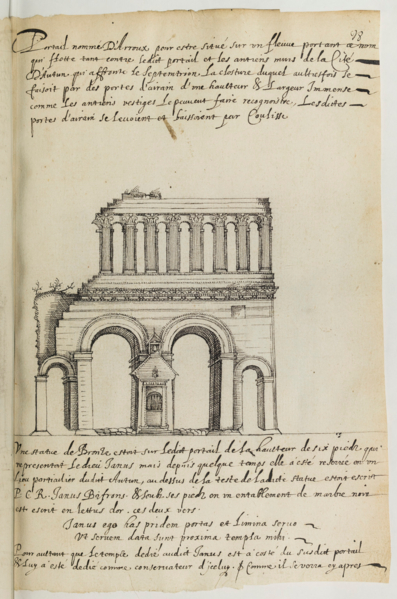 98
Portail nommé D'Arroux pour estre situé sur un fleuve portant ce nom
qui flotte tant contre ledit portail et les antiens murs de la Cité
D'Autun qui affronte le Septemtrion, La closture duquel aultresfois se
faisoit par des portes d'airain d'une haultteur & Largeur Immense
comme les antiens vestiges le peuvent faire recognoistre, Lesdites
portes d'airain se Levoient et baissoient par Coulisse
Une statue de Bronze estoit sur ledit portail de la haultteur de six piedz qui
representoit Le dieu Janus mais depuis quelque temps elle a esté en un
lieu particulier dudit Autun, au dessus de la teste de ladite statue estoit escrit
P. C. R. Janus Bifrons, & soubz ses piedz en un entablement de marbre noir
est escrit en lettres d'or, ces deux vers.
Janus ego has pridem portas et Limina servo
Ut servem data sunt proxima templa mihi.
Pour aultant que le temple dedié audit Janus est à costé du susdit portail
& Luy a esté dedié comme conservateur d'iceluy, & Comme il se verra cy apres